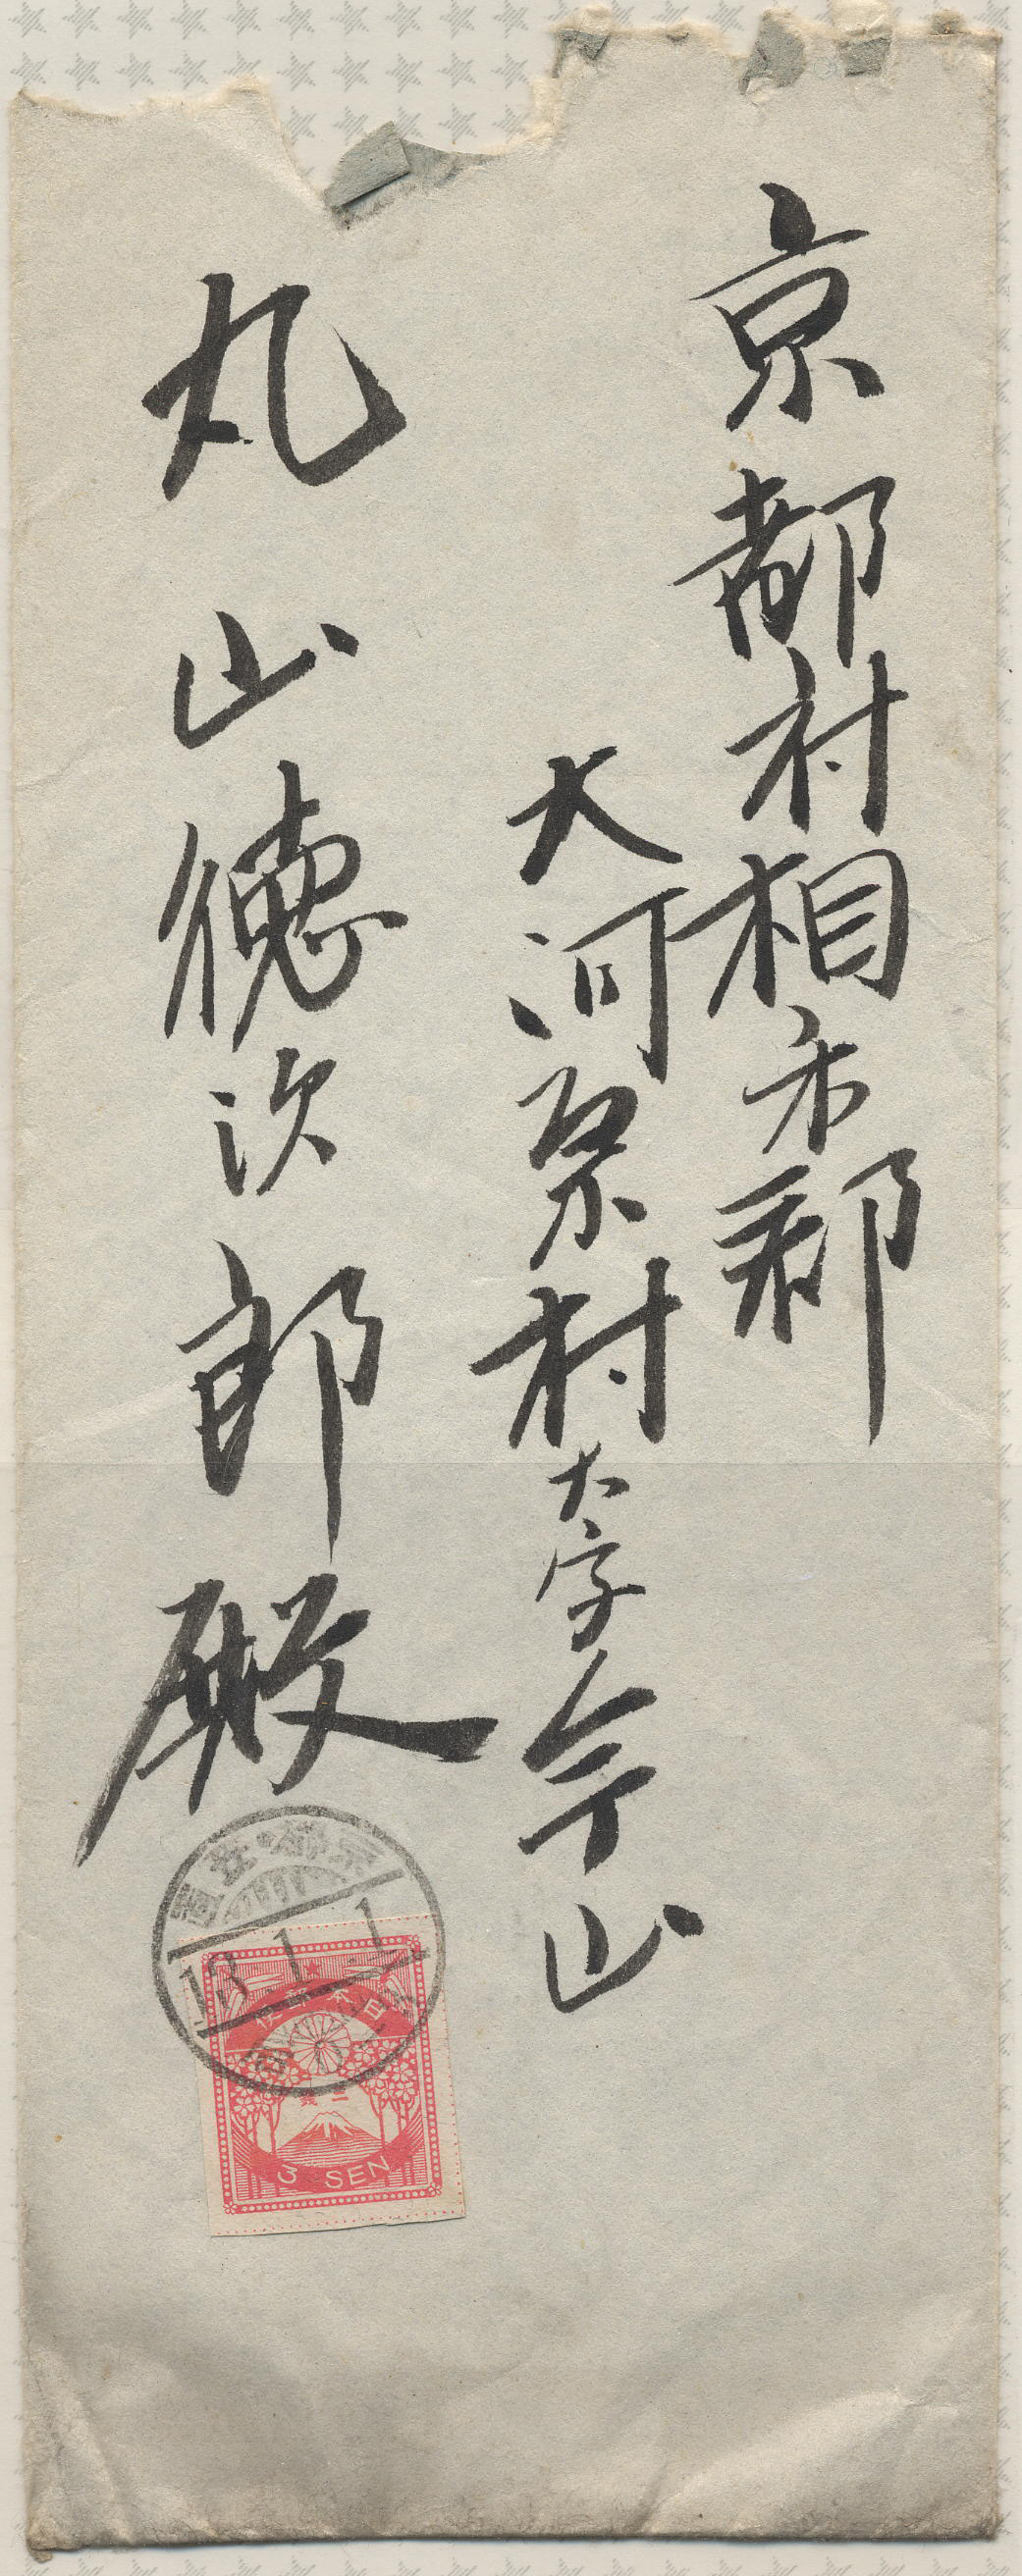 京都府相楽郡
大河原村大字今山
丸山徳次郎殿
京都・笠置
13.1.1
日本郵便
三銭
3 SEN